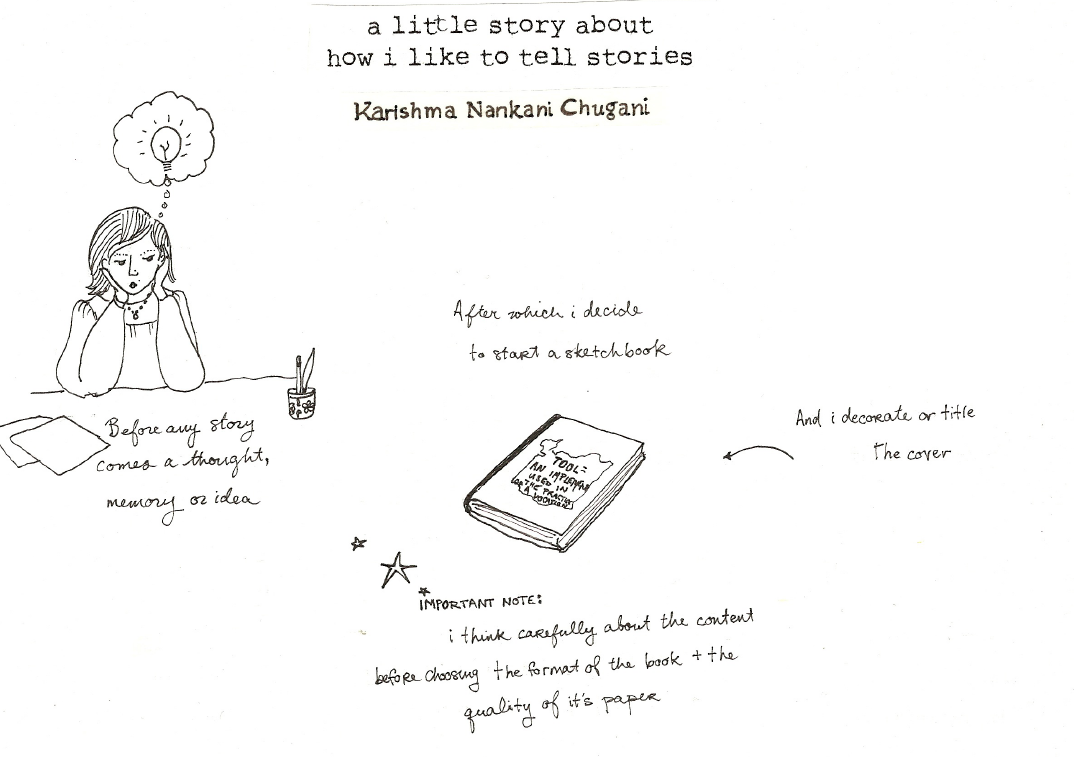 a little story about
how i like to tell stories
Karishma Nankani Chugani
Before any story
comes a thought,
memory or idea
After which i decide
to start a sketchbook
TOOL:
AN IMPLEMENT
USED IN
THE PRACTICE
A VOCATION
And i decorate or title
the cover
IMPORTANT NOTE:
i think carefully about the content
before choosing the format of the book + the
quality of it's paper